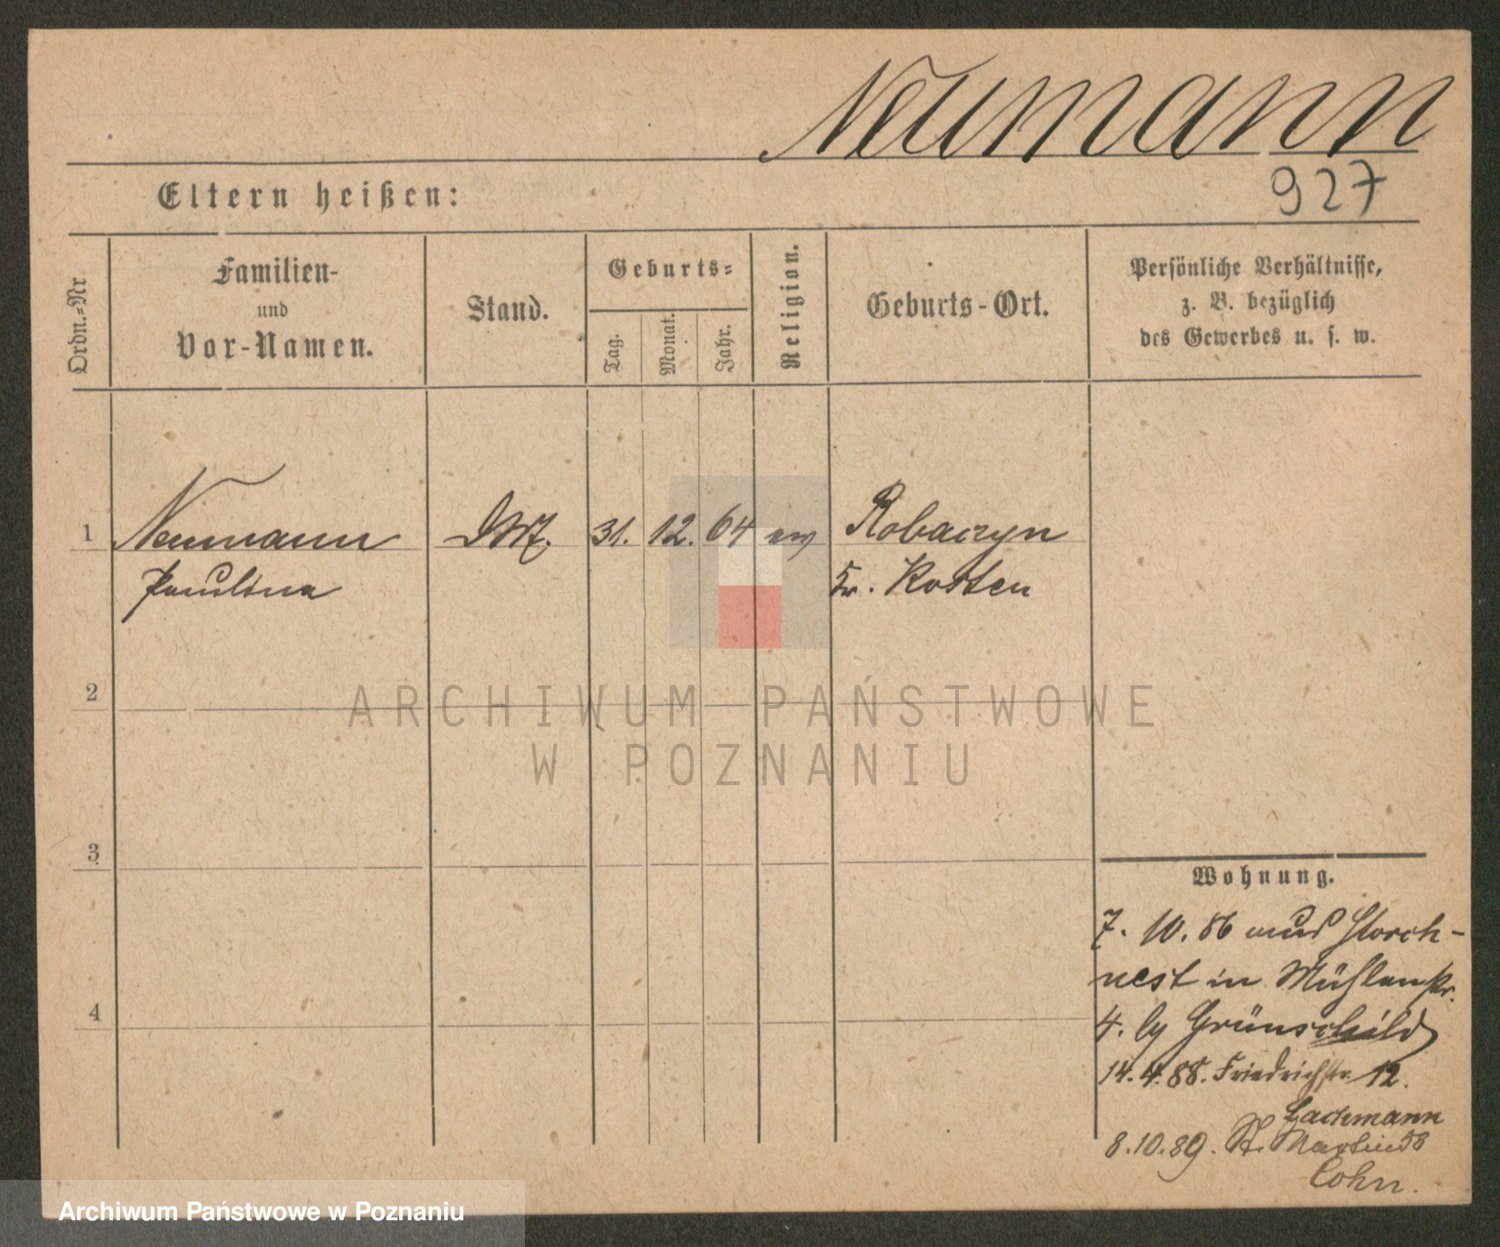 Neumann
927
Eltern heißen:
Ordn.-Nr
Familien-
und
Vor-Namen.
Stand.
Geburts-
Tag.
Monat.
Jahr.
Religion.
Geburts-Ort.
Persönliche Verhältnisse,
z. B. bezüglich
des Gewerbes u. s. w.
1 Neumann 31. 12. 64 ev Robaczyn
Paulina Kr. Kosten
2
3
4
Wohnung.
7. 10. 86 aus Storch-
nest in Mühlenstr.
4. by Grünschild
14. 4. 88. Friedrichstr. 12.
Lachmann
8.10.89. St. Martin 58
Cohn.
ARCHIWUM PAŃSTWOWE
W POZNANIU
Archiwum Państwowe w Poznaniu